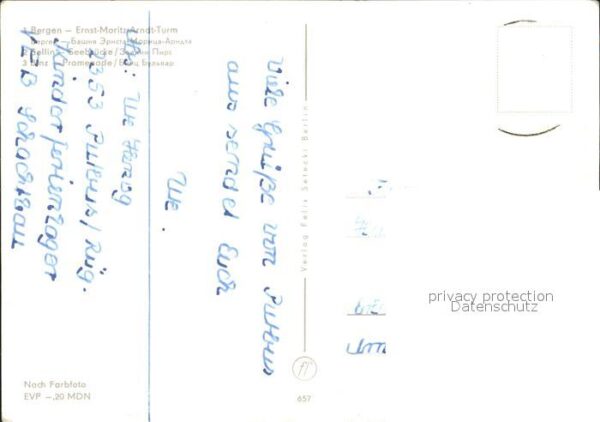 1 Bergen — Ernst-Moritz-Arndt-Turm
Берген — Башня Эрнста-Морица-Арндта
2 Sellin — Seebrücke / Зеллин Пирс
3 Binz — Promenade / Бинц Бульвар
Viele Grüße von Putbus
aus sendet Euch
Uwe.
Abs: Uwe Herzog
2353 Putbus / Rüg.
Kinderferienlager
VEB Schachtbau
Nach Farbfoto
EVP —,20 MDN
Verlag Felix Setecki Berlin
657
privacy protection
Datenschutz